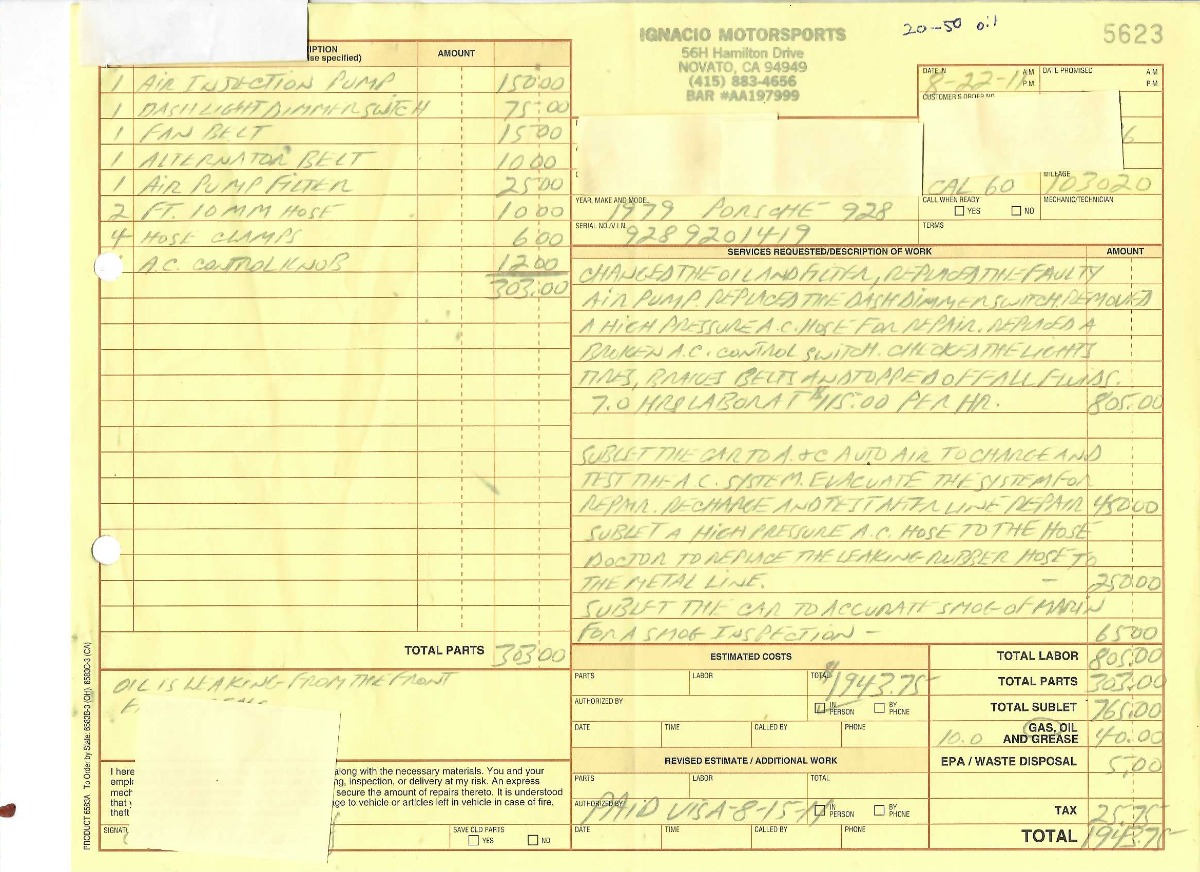 20-50 oil
5623
IGNACIO MOTORSPORTS
56H Hamilton Drive
NOVATO, CA 94949
(415) 883-4656
BAR #AA197999
DATE IN 8-22-11 A M P M
DATE PROMISED A M P M
CUSTOMER'S ORDER NO.
6
CAL 60
MILEAGE 103020
YEAR, MAKE AND MODEL 1979 PORSCHE 928
CALL WHEN READY YES NO
MECHANIC/TECHNICIAN
SERIAL NO./V.I.N. 9289201419
TERMS
IPTION AMOUNT
se specified)
1 AIR INJECTION PUMP 150.00
1 DASH LIGHT DIMMER SWITCH 75.00
1 FAN BELT 15.00
1 ALTERNATOR BELT 10.00
1 AIR PUMP FILTER 25.00
2 FT. 10MM HOSE 10.00
4 HOSE CLAMPS 6.00
A.C. CONTROL KNOB 12.00
303.00
TOTAL PARTS 303.00
OIL IS LEAKING FROM THE FRONT
SERVICES REQUESTED/DESCRIPTION OF WORK AMOUNT
CHANGED THE OIL AND FILTER, REPLACED THE FAULTY
AIR PUMP. REPLACED THE DASH DIMMER SWITCH. REMOVED
A HIGH PRESSURE A.C. HOSE FOR REPAIR. REPLACED A
BROKEN A.C. CONTROL SWITCH. CHECKED THE LIGHTS
TIRES, BRAKES BELTS AND TOPPED OFF ALL FLUIDS.
7.0 HRS LABOR AT $115.00 PER HR. 805.00
SUBLET THE CAR TO A. & C AUTO AIR TO CHARGE AND
TEST THE A.C. SYSTEM. EVACUATE THE SYSTEM FOR
REPAIR. RECHARGE AND TEST AFTER LINE REPAIR 450.00
SUBLET A HIGH PRESSURE A.C. HOSE TO THE HOSE
DOCTOR TO REPLACE THE LEAKING RUBBER HOSE TO
THE METAL LINE. - 250.00
SUBLET THE CAR TO ACCURATE SMOG OF MARIN
FOR A SMOG INSPECTION - 65.00
ESTIMATED COSTS
PARTS LABOR TOTAL $1943.75
AUTHORIZED BY IN PERSON BY PHONE
DATE TIME CALLED BY PHONE
REVISED ESTIMATE / ADDITIONAL WORK
PARTS LABOR TOTAL
AUTHORIZED BY PAID VISA-8-15-11 IN PERSON BY PHONE
DATE TIME CALLED BY PHONE
TOTAL LABOR 805.00
TOTAL PARTS 303.00
TOTAL SUBLET 765.00
10.0 GAS, OIL AND GREASE 40.00
EPA / WASTE DISPOSAL 5.00
TAX 25.75
TOTAL 1943.75
I here along with the necessary materials. You and your
emplo ng, inspection, or delivery at my risk. An express
mech secure the amount of repairs thereto. It is understood
that y ge to vehicle or articles left in vehicle in case of fire,
theft
SIGNATU
SAVE OLD PARTS YES NO
PRODUCT 6583A To Order by State: 6583B-3 (OH), 6583C-3 (CA)